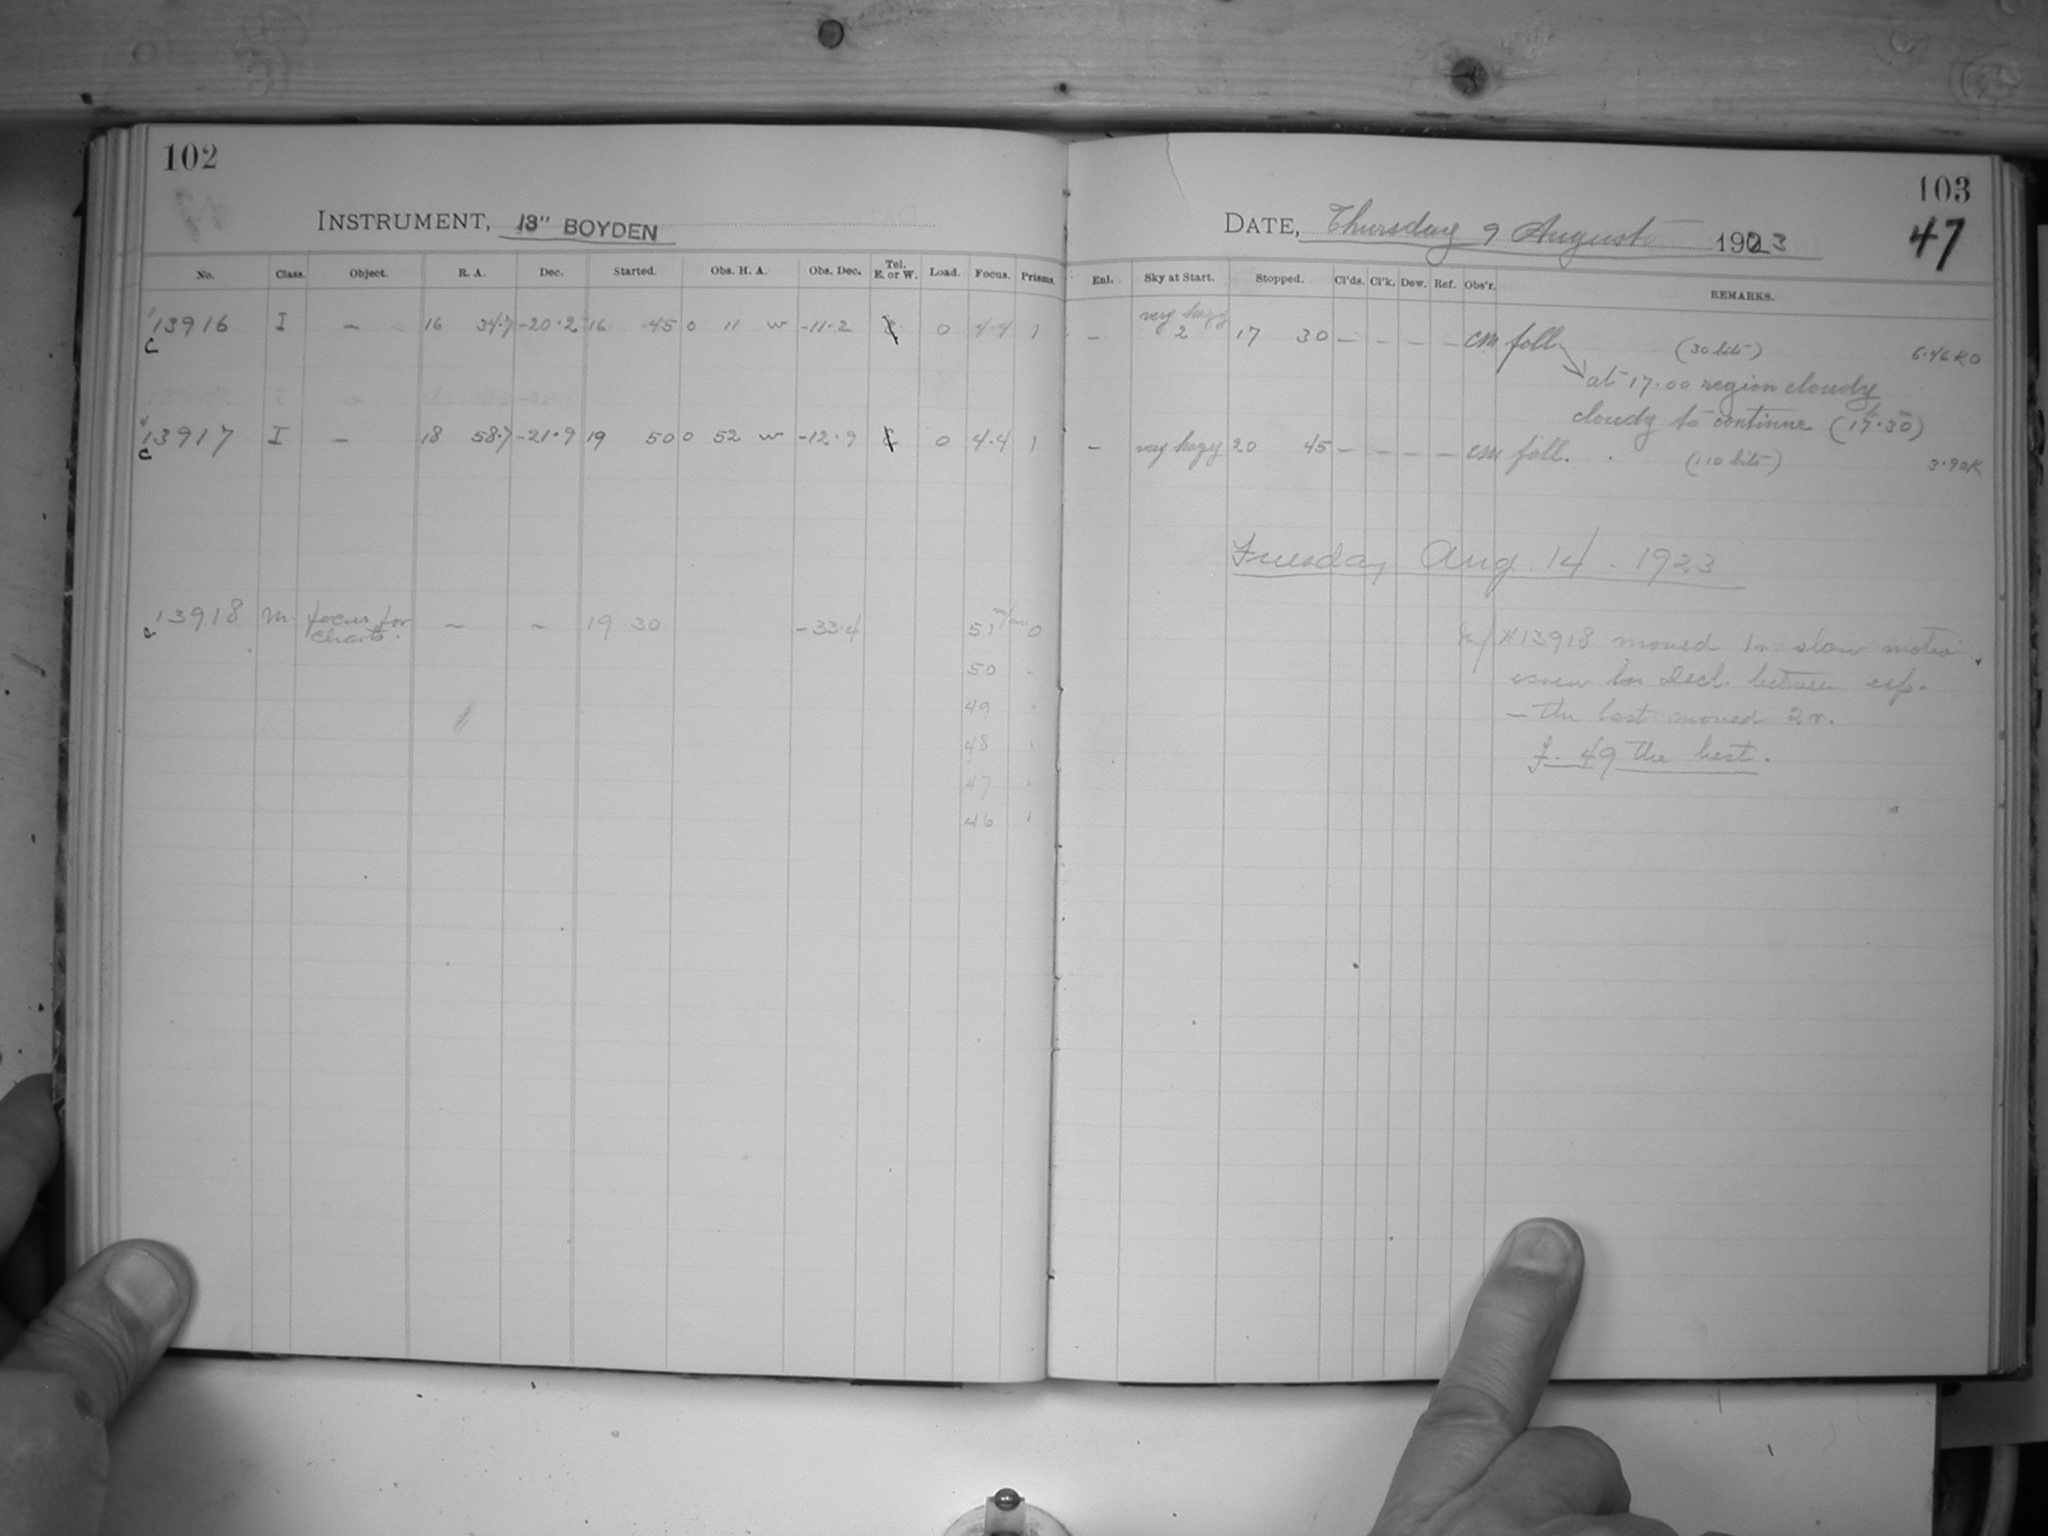 102
INSTRUMENT, 13" BOYDEN
No. Class. Object. R. A. Dec. Started. Obs. H. A. Obs. Dec. Tel. E. or W. Load. Focus. Prisms.
13916 I — 16 34.7 -20.2 16 45 0 11 w -11.2 0 4.4 1
c
13917 I — 18 58.7 -21.9 19 50 0 52 w -12.9 0 4.4 1
c
13918 M. focus for charts. ~ ~ 19 30 -33.4 51 0
50
49
48
47
46
103
DATE, Thursday 9 August 1923
47
Enl. Sky at Start. Stopped. Cl'ds. Cl'k. Dew. Ref. Obs'r. REMARKS.
— very hazy 2 17 30 — — — — cm foll. (30 bits) 6.46 KO
at 17.00 region cloudy
cloudy to continue (17.30)
— very hazy 20 45 — — — — cm foll. (110 bits) 3.90K
Tuesday Aug. 14. 1923
13918 moved 1r. slow motion
screw in Decl. between exp.
— the last moved 2r.
f. 49 the best.